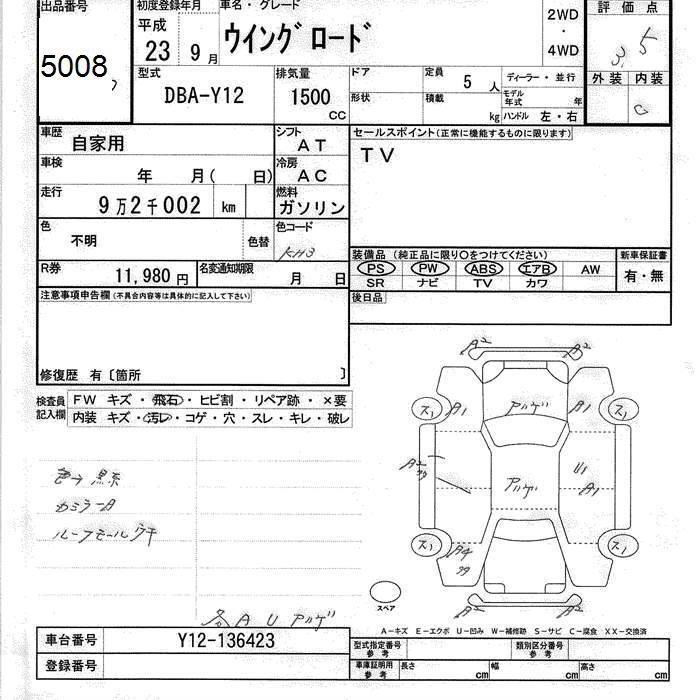 出品番号 初度登録年月 車名・グレード 評価点
5008 平成 23 9月 ウイングロード 2WD・4WD 3.5
型式 排気量 ドア 定員 5人 ディーラー・並行 外装 内装
DBA-Y12 1500cc 形状 積載 kg モデル年式 年 ハンドル 左・右 C
車歴 自家用 シフト AT セールスポイント(正常に機能するものに限ります)
車検 年 月( 日) 冷房 AC TV
走行 9万2千002 km 燃料 ガソリン
色 不明 色替 色コード KH3
装備品(純正品に限り○をつけてください) 新車保証書
PS PW ABS エアB AW 有・無
SR ナビ TV カワ
R券 11,980円 名変通知期限 月 日
後日品
注意事項申告欄(不具合内容等は具体的に記入して下さい)
修復歴 有〔箇所 〕
検査員記入欄 FW キズ・飛石・ヒビ割・リペア跡・×要
内装 キズ・汚レ・コゲ・穴・スレ・キレ・破レ
A2 A2
ス1 A1 アハゲ A1 ス1
A2
アハゲ U1 A1
色→黒系
カミラーA
ルーフモールウキ
ス1 A4 ス1
A2 A2
スペア
各AUアハゲ
A-キズ E-エクボ U-凹み W-補修跡 S-サビ C-腐食 XX-交換済
車台番号 Y12-136423 型式指定番号参考 類別区分番号参考
登録番号 車庫証明用参考 長さ cm 幅 cm 高さ cm